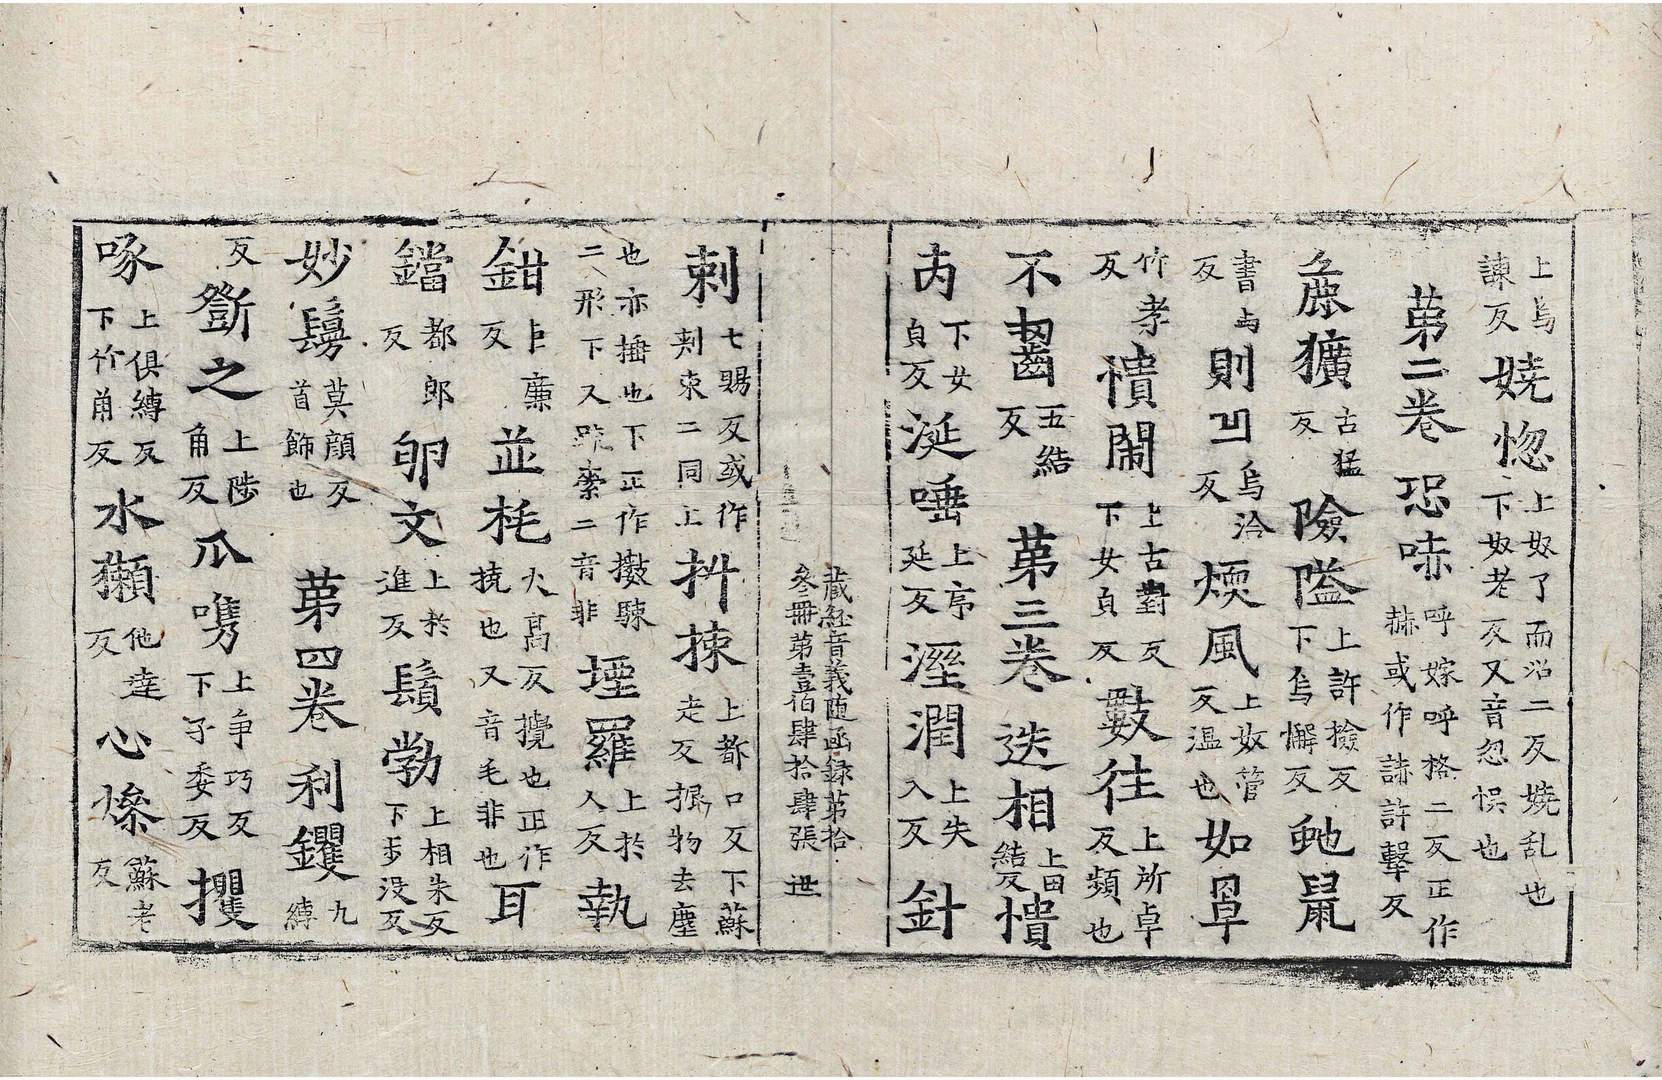 上烏諫反嬈惚上奴了而沼二反嬈乱也下奴老反又音忽悮也
第二卷 恐哧呼嫁呼格二反正作赫或作諕許擊反
麁獷古猛反險隘上許撿反下烏懈反虵鼠
書与反則凹烏洽反煗風上奴管反温也如罩
竹孝反憒閙上古對反下女皃反數往上所卓反頻也
不齧五結反 第三卷 迭相上田結反憒
内下女皃反涎唾上序延反溼潤上失入反針
藏経音義随函録第拾叄冊第壹伯肆拾肆張 迣
刺七賜反或作刾朿二同上抖揀上都口反下蘇走反振物去塵
也亦捶也下正作擻𢷾二形下又踈䋈二音非堙羅上於人反執
鉗巨廉反並秏火高反攪也正作撓也又音毛非也耳
鐺都郎反卵文上於進反鬚勃上相朱反下步没反
妙鬘莫顔反首飾也 第四卷 利钁九縛
反斵之上陟角反爪㗱上爭巧反下子委反攫
啄上俱縛反下竹角反水獺他達反心懆蘇老反